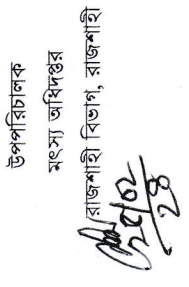 উপপরিচালক
মৎস্য অধিদপ্তর
রাজশাহী বিভাগ, রাজশাহী